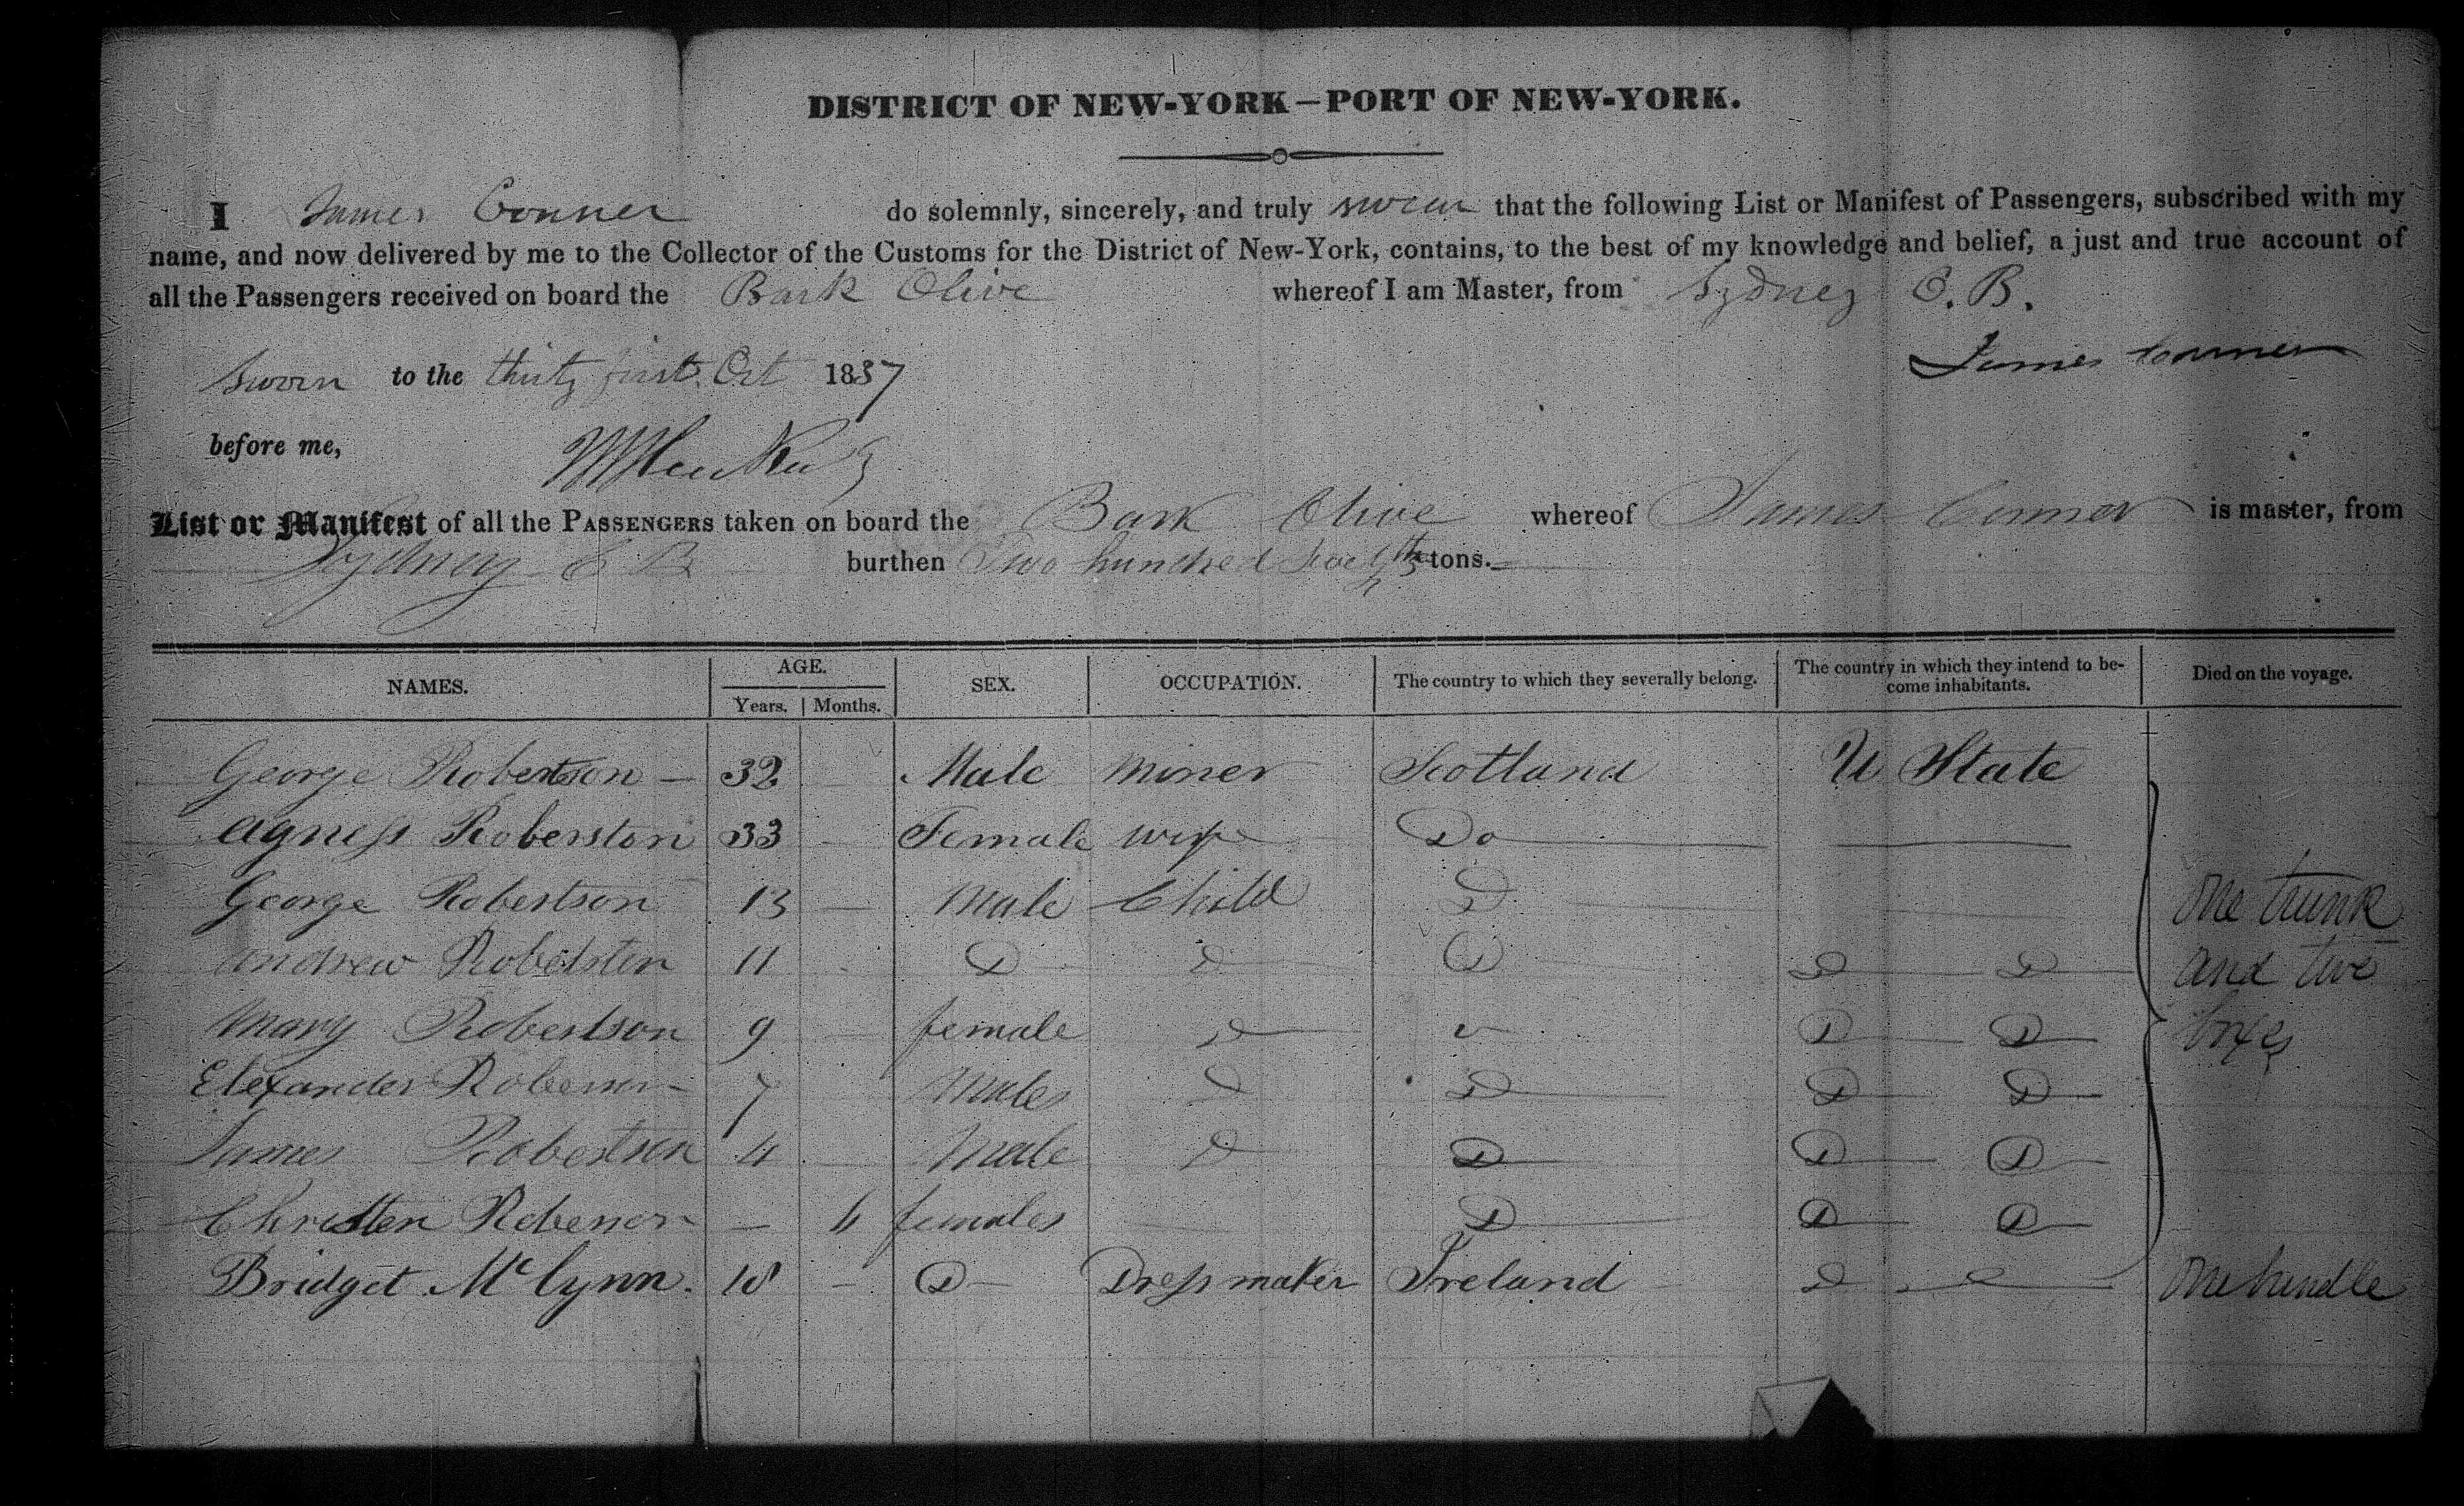 DISTRICT OF NEW-YORK—PORT OF NEW-YORK.
I James Conner do solemnly, sincerely, and truly swear that the following List or Manifest of Passengers, subscribed with my
name, and now delivered by me to the Collector of the Customs for the District of New-York, contains, to the best of my knowledge and belief, a just and true account of
all the Passengers received on board the Bark Olive whereof I am Master, from Sydney C. B.
James Conner
Sworn to the thirty first Oct 1837
before me,
List or Manifest of all the PASSENGERS taken on board the Bark Olive whereof James Connor is master, from
Sydney C B burthen Two hundred tons.
NAMES. AGE. Years. Months. SEX. OCCUPATION. The country to which they severally belong. The country in which they intend to become inhabitants. Died on the voyage.
George Robertson — 32 Male Miner Scotland U State
Agness Roberston 33 Female wife Do
George Robertson 13 — Male Child D one trunk
Andrew Robertson 11 D D D D D and two
Mary Robertson 9 — female D D D boxes
Elexander 7 Males D D D D
James Robertson 4 Male D D D D
Christen — 6 females D D D
Bridget McGynn. 18 — D Dress maker Ireland D one bundle